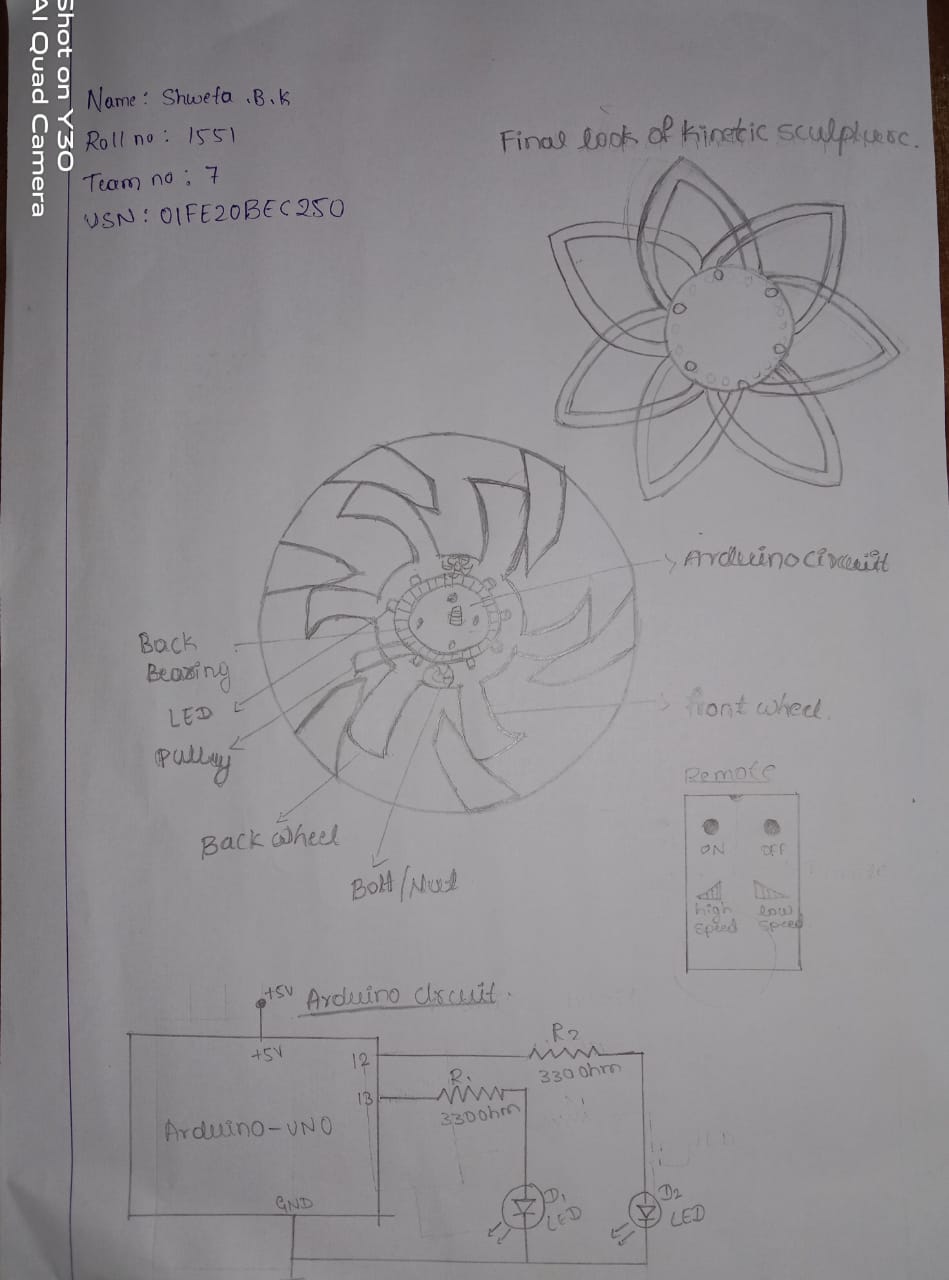 Shot on Y30
AI Quad Camera
Name: Shweta .B.K
Roll no: 1551
Team no: 7
USN: 01FE20BEC250
Final look of kinetic sculpture.
Arduino circuit
Back
Bearing
LED
Pulley
front wheel.
Back wheel
Bolt/Nut
Remote
ON OFF
high low
speed speed
+5V Arduino circuit.
+5V
12
13
Arduino-UNO
GND
R2
330 ohm
R1
330 ohm
D1
LED
D2
LED